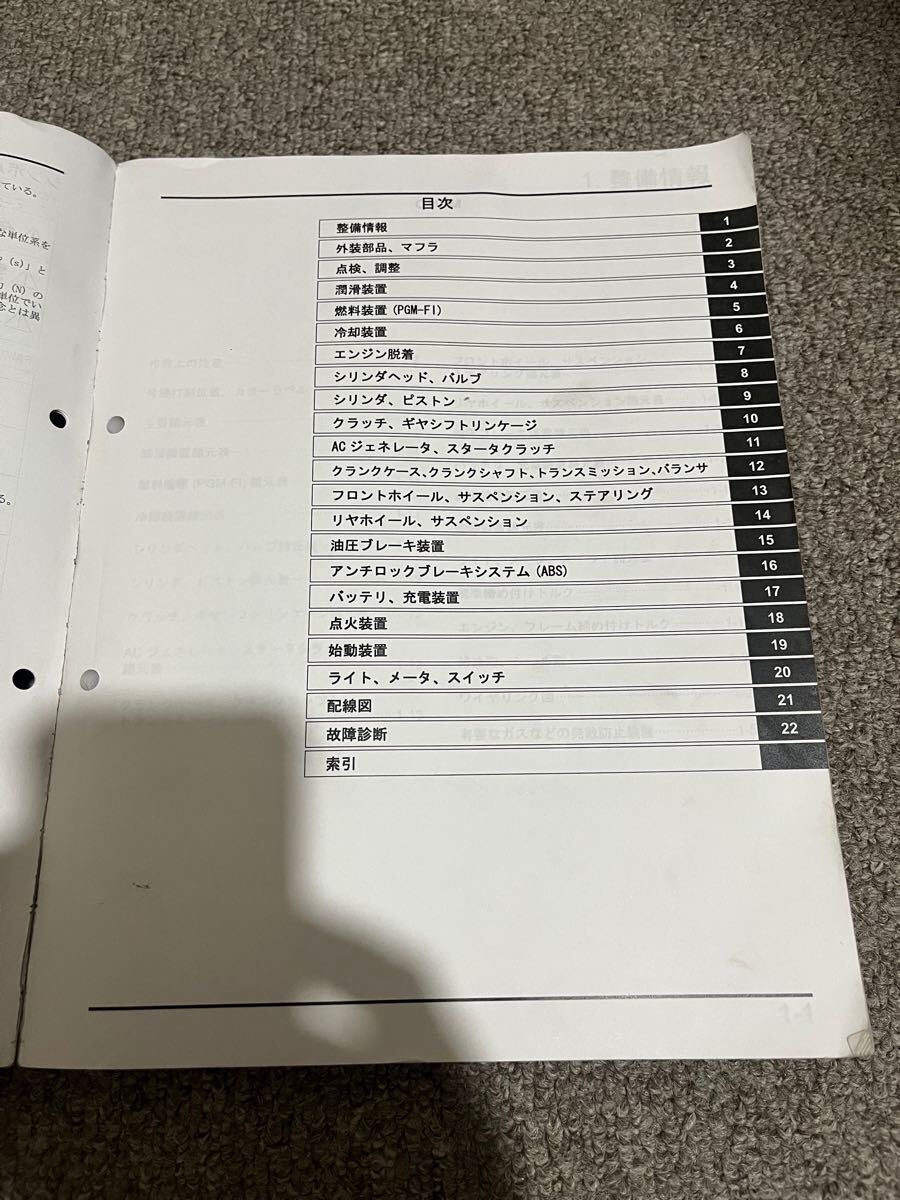 ている。
な単位系を
(s)」と
(N) の
単位でい
念とは異
る。
目次
整備情報 1
外装部品、マフラ 2
点検、調整 3
潤滑装置 4
燃料装置 (PGM-FI) 5
冷却装置 6
エンジン脱着 7
シリンダヘッド、バルブ 8
シリンダ、ピストン 9
クラッチ、ギヤシフトリンケージ 10
AC ジェネレータ、スタータクラッチ 11
クランクケース、クランクシャフト、トランスミッション、バランサ 12
フロントホイール、サスペンション、ステアリング 13
リヤホイール、サスペンション 14
油圧ブレーキ装置 15
アンチロックブレーキシステム (ABS) 16
バッテリ、充電装置 17
点火装置 18
始動装置 19
ライト、メータ、スイッチ 20
配線図 21
故障診断 22
索引